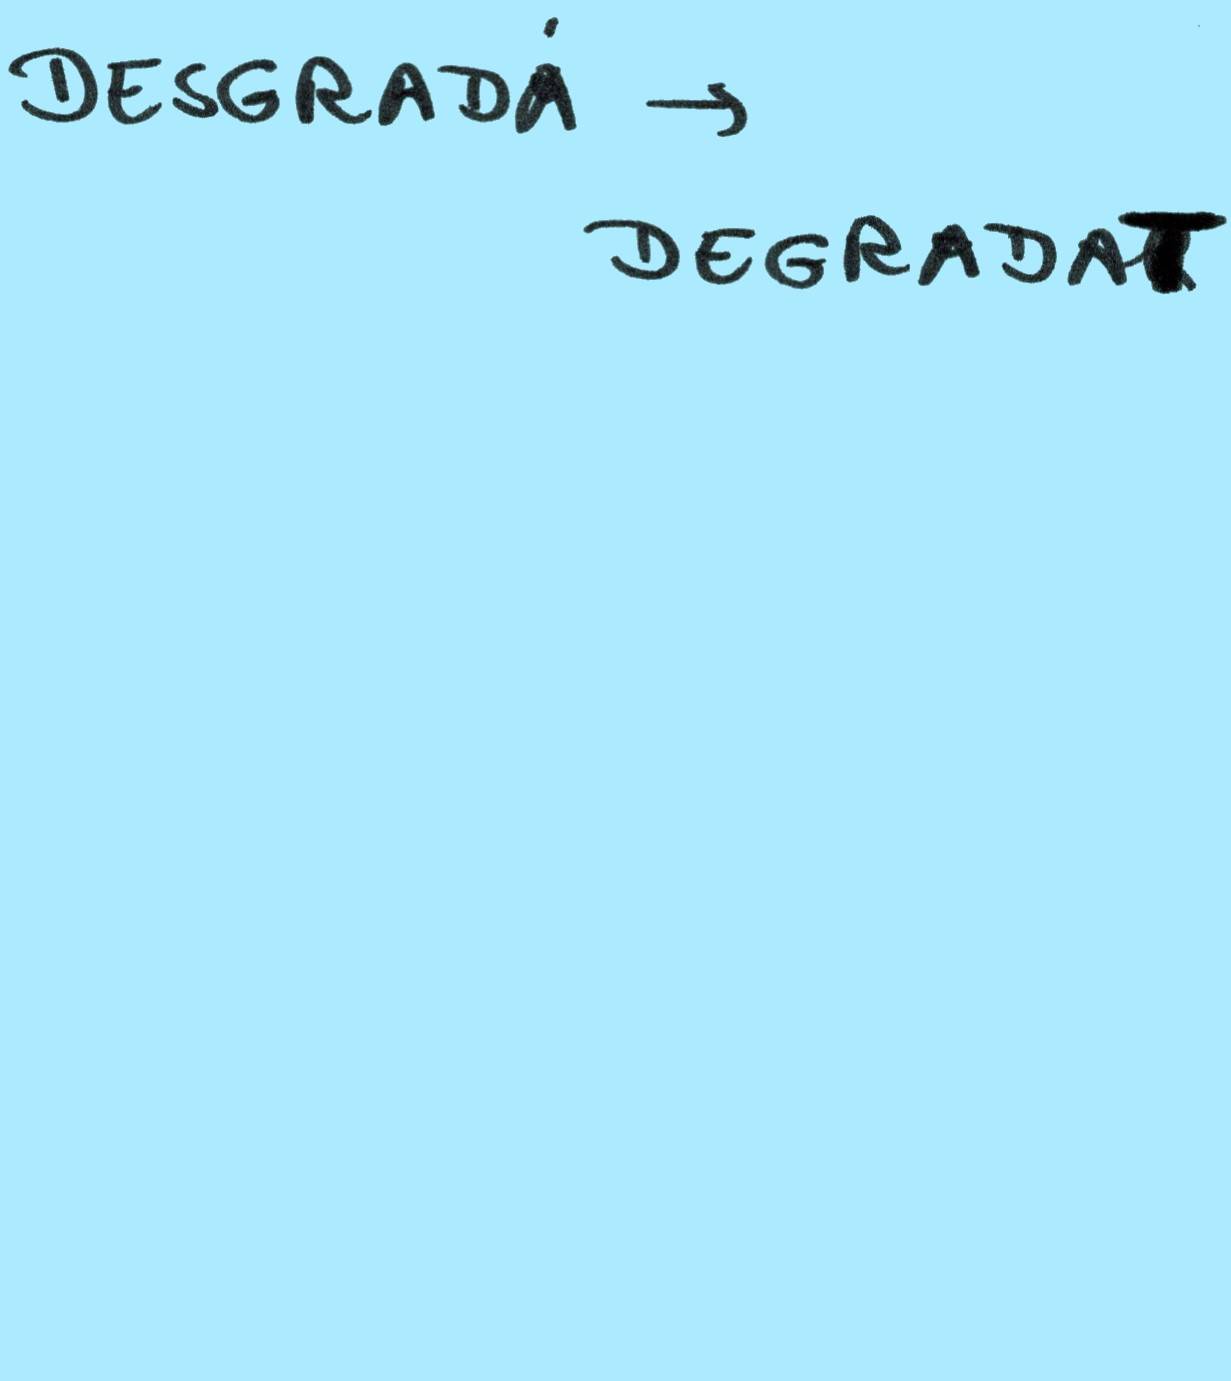 DESGRADÁ →
DEGRADAT